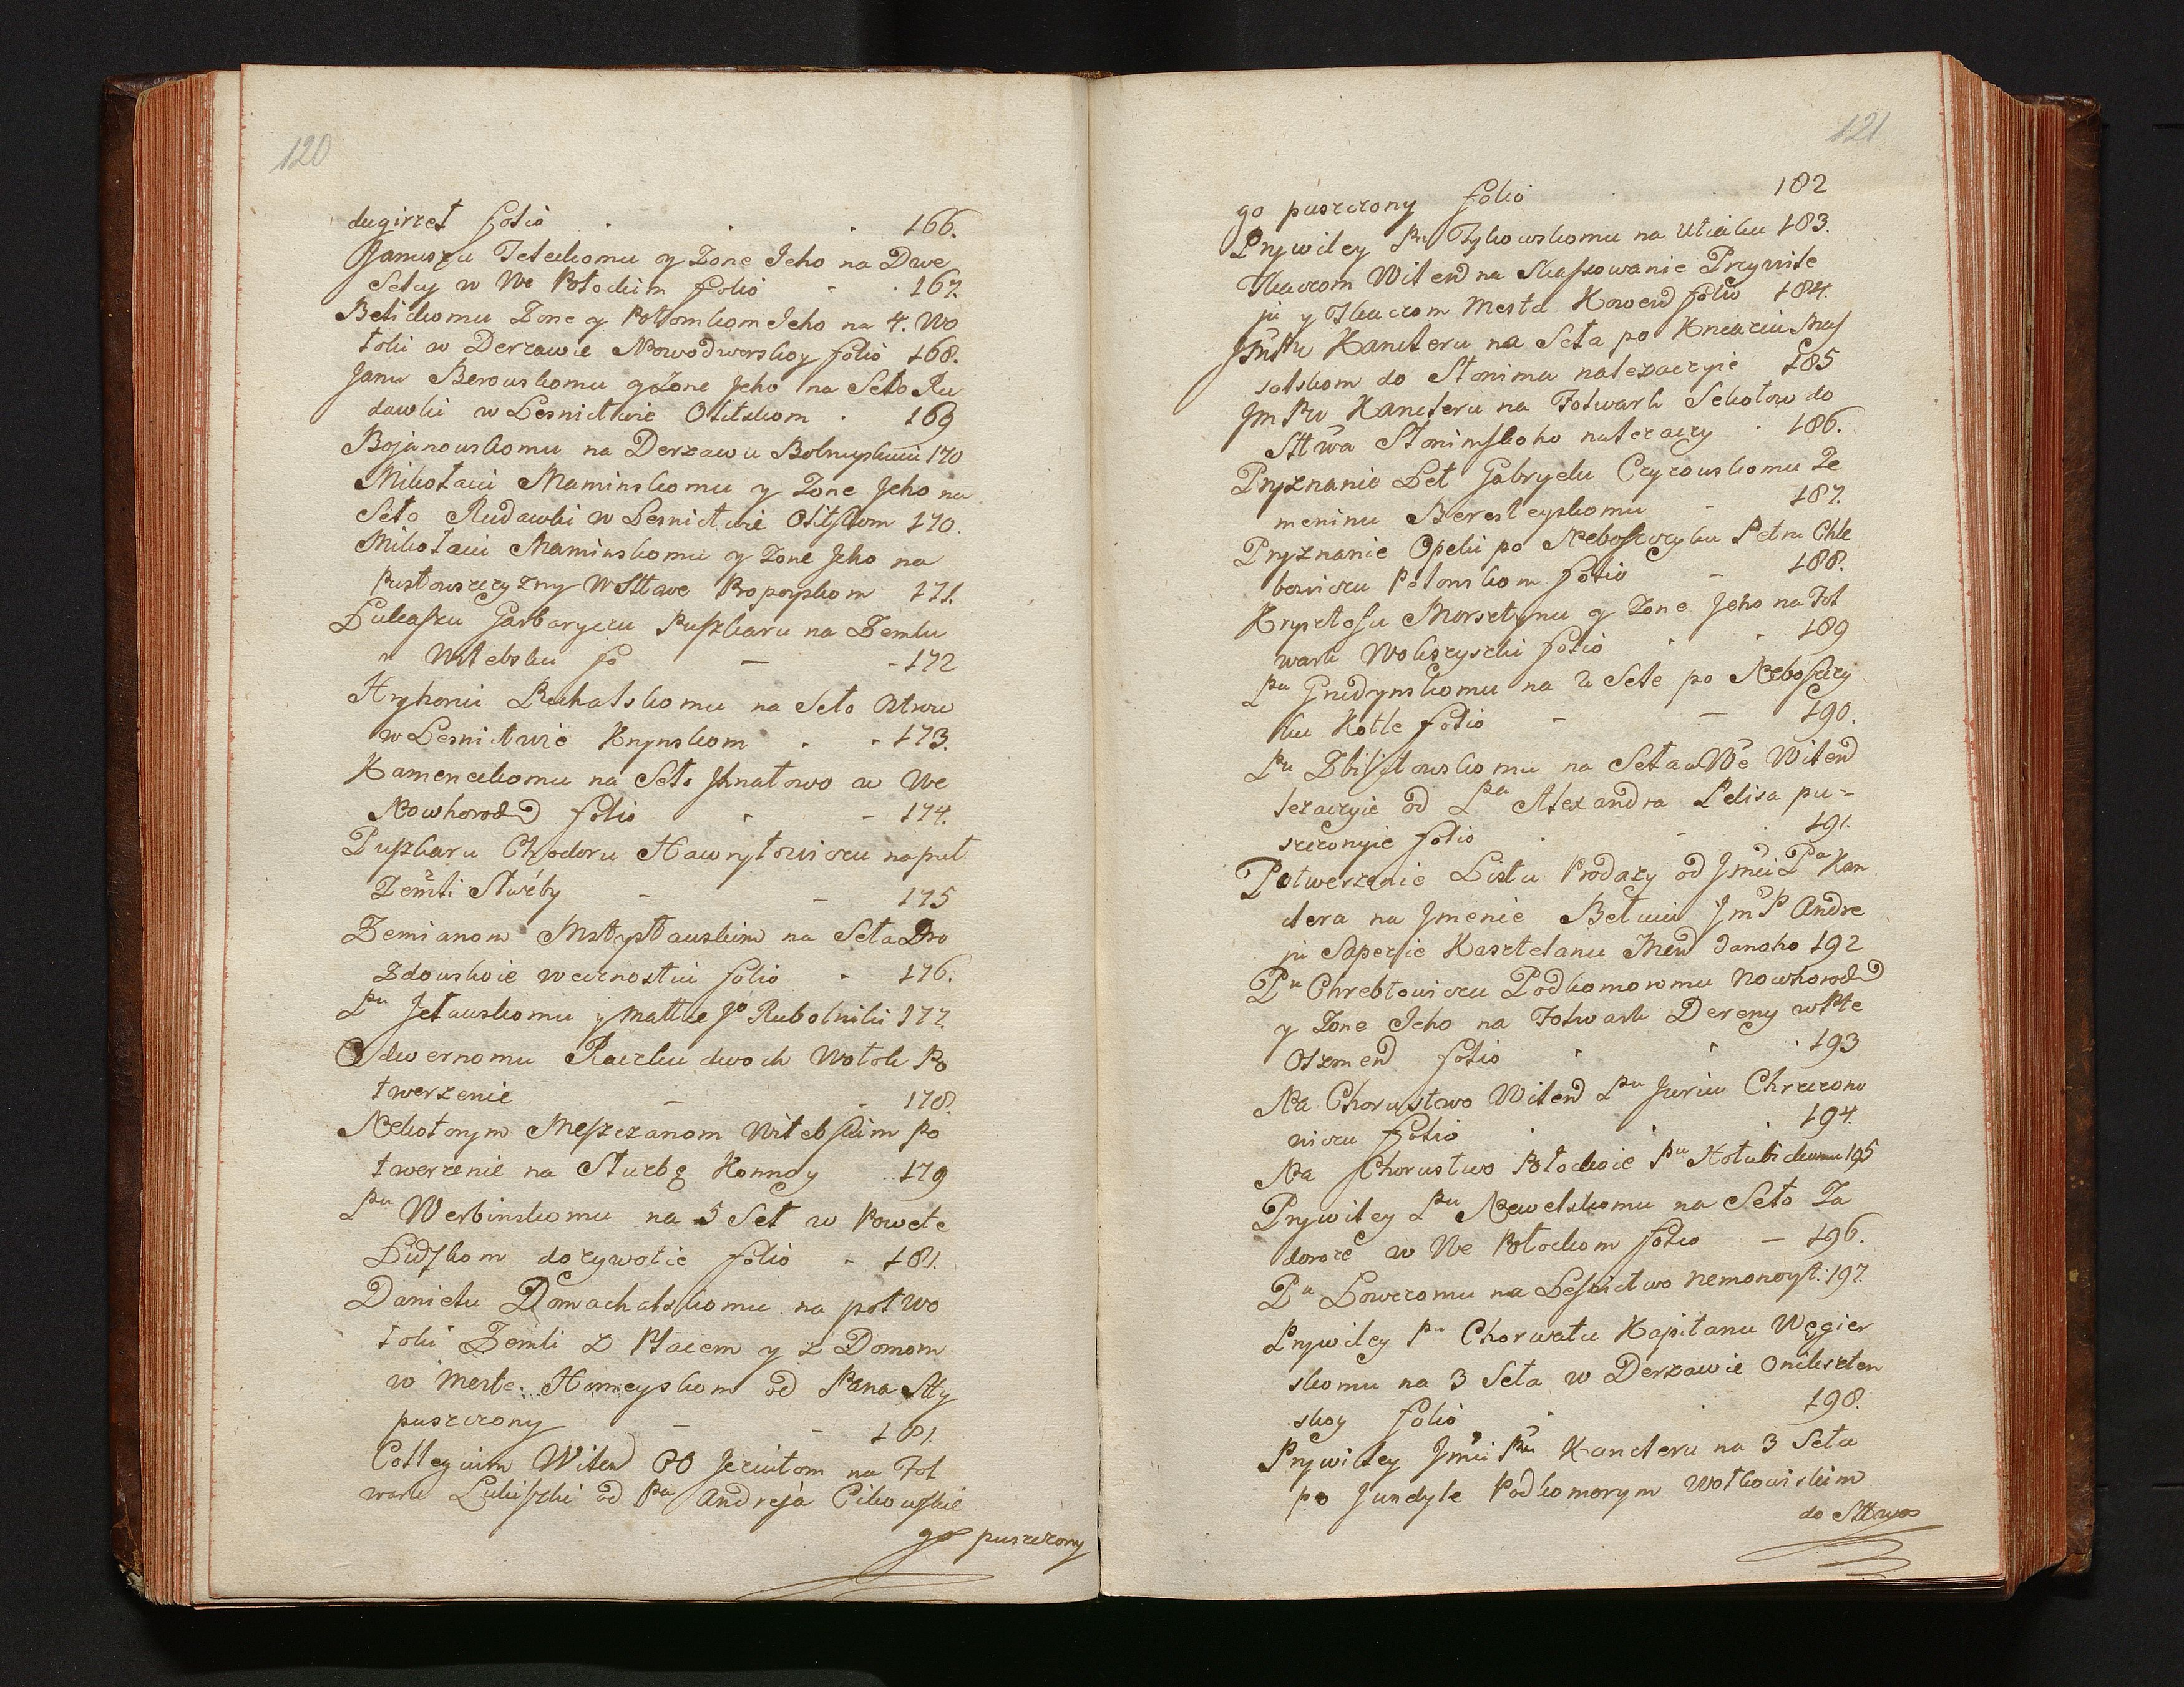 120
dugirzeł folio . . . 166.
Januszu Teteckomu y Żone Jeho na Dwe
Selcy w We Połockim folio - . 167.
Belickomu Żone y Potomkom Jeho na 4. Wo
łoki w Derżawie Nowodworskoy folio 168.
Janu Berowskomu y Żone Jeho na Seło Ru
dawki w Lesnictwie Olitskom . 169
Bojanowskomu na Derżawu 170
Mikołaiu Maminskomu y Żone Jeho na
Seło Rudawki w Lesnictwie Olitskom 170.
Mikołaiu Maminskomu y Żone Jeho na
Pustowszczyzny w Sttwe Propoyskom 171.
Łukaszu Garbaryczu Puszkaru na Zemlu
w Witebsku fo — - 172
Hryhoriu Puchalskomu na Seło
w Lesnictwie Krynskom . . 173.
Kameneckomu na Seło Jhnatowo w We
Nowhorod folio . - 174.
Puszkaru Chfedoru Hawryłowiczu na puł
Zemli Służby - - 175
Zemianom Mstysławskim na Seła Dro
zdowskoie wecznostiu folio - 176.
Pu Jeławskomu y Matce Jo Rubolniki 177.
Odwernomu Raczku dwoch Wołok Po
twerżenie — . 178.
Nekotorym Meszczanom Witebskim Po
twerżenie na Służbę Konnoy 179
Pu Werbinskomu na 5 Seł w Powete
Lidskom dożywotie folio - 181.
Danielu Domachalskomu na poł Wo
łoki Zemli z Placem y z Domom
w Meste Homeyskom od Pana Stty
puszczony - - 181.
Collegium Wilen OO Jezuitom na Fol
wark Łukiszki od Pa Andreja Cikowskie
go puszczony
121
go puszczony folio . 182
Prywiley Pu Tykowskomu na Utiaku 183.
Tkaczom Wilen na Skassowanie Przywile
ju y Tkaczom Mesta Kowen folio 184.
Jmu Kancleru na Seła po Kniaziu Mas
salskom do Słonima należaczyie 185
Jm Pu Kancleru na Folwark Sekołow do
Sttwa Słonimskoho należaczy . 186.
Pryznanie Let Gabryelu Czyżowskomu Ze
meninu Beresteyskomu - 187.
Pryznanie Opeki po Neboszczyku Petru Chle
bowiczu folio — 188.
Krysztofu Morsztynu y Żone Jeho na Fol
wark Wokszyszki folio . . 189
Pu Grudzynskomu na 2 Sele po Neboszczy
ku Kotle folio - — 190.
Pu Zbistowskomu na Seła w We Wilen
leżaczyie od Pa Alexandra Lelisa pu-
szczonyie folio . - . 191.
Potwerżenie Listu Prodaży od Jmci Pa Kan
clera na Jmenie Jm P Andre
ju Sapezie Kasztelanu Men danoho 192
Pu Chrebtowiczu Podkomoromu Nowhorod
y Żone Jeho na Folwark Dereny w Pte
Oszmen folio . . . 193
Na Chorustwo Wilen Pu Juriu Chrzczono
wiczu folio . . 194.
Na Chorustwo Połockoie Pu Hołubickomu 195
Prywiley Pu Newelskomu na Seło Za
doroże w We Połockom folio — 196.
Pu Łowczomu na Lesnictwo Nemonoyt: 197.
Prywiley Pu Chorwatu Kapitanu Węgier
skomu na 3 Seła w Derżawie Onikszten
skoy folio . . 198.
Prywiley Jmci Pu Kancleru na 3 Seła
po Jundyle Podkomorym Wołkowiskim
do Sttwa